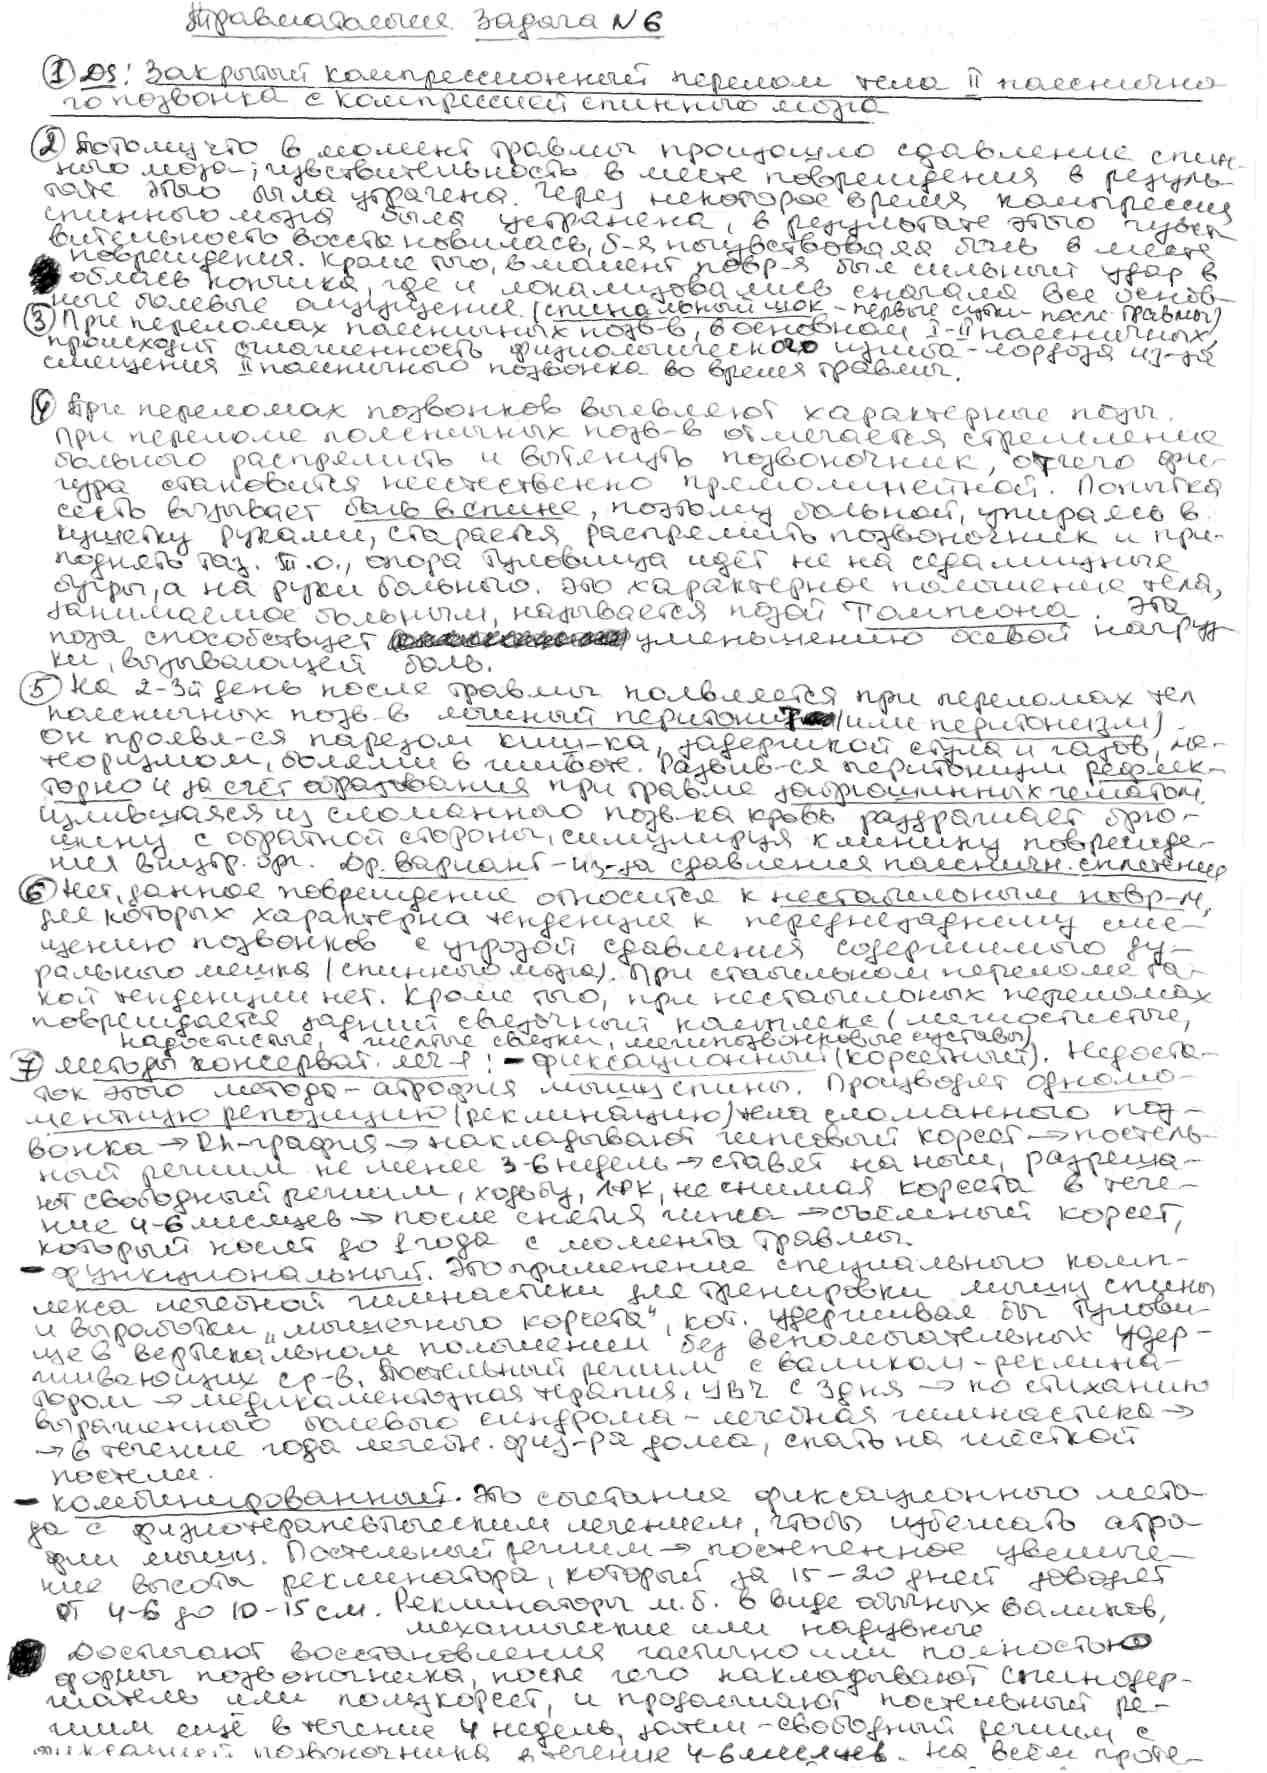 Травматология Задача N 6
① DS: Закрытый компрессионный перелом тела II пояснично
го позвонка с компрессией спинного мозга
② Потому что в момент травмы произошло сдавление спин-
ного мозга; чувствительность в месте повреждения в резуль-
тате этого была утрачена. Через некоторое время компрессия
спинного мозга была устранена, в результате этого чувст
вительность восстановилась, б-я почувствовала боль в месте
повреждения. Кроме того, в момент повр-я был сильный удар в
область копчика, где и локализовались сначала все основ-
ные болевые ощущения (спинальный шок - первые сутки после травмы)
③ При переломах поясничных позв-в, в основном I-II поясничных,
происходит сглаженность физиологического изгиба - лордоза из-за
смещения II поясничного позвонка во время травмы.
④ При переломах позвонков выявляют характерные позы.
При переломе поясничных позв-в отмечается стремление
больного распрямить и вытянуть позвоночник, отчего фи-
гура становится неестественно прямолинейной. Попытка
сесть вызывает боль в спине, поэтому больной, упираясь в
кушетку руками, старается распрямить позвоночник и при-
поднять таз. Т.о., опора туловища идёт не на седалищные
бугры, а на руки больного. Это характерное положение тела,
занимаемое больным, называется позой Томпсона. Эта
поза способствует уменьшению осевой нагруз
ки, вызывающей боль.
⑤ На 2-3й день после травмы появляется при переломах тел
поясничных позв-в ложный перитонит (или перитонизм).
Он проявл-ся парезом киш-ка, задержкой стула и газов, ме-
теоризмом, болями в животе. Развив-ся перитонизм рефлек-
торно и за счёт образования при травме забрюшинных гематом
излившаяся из сломанного позв-ка кровь раздражает брю-
шину с обратной стороны, симулируя клинику поврежде-
ния внутр. орг. Др. вариант - из-за сдавления поясничн. сплетения
⑥ Нет, данное повреждение относится к нестабильным повр-м,
для которых характерна тенденция к переднезаднему сме-
щению позвонков с угрозой сдавления содержимого ду-
рального мешка (спинного мозга). При стабильном переломе та-
кой тенденции нет. Кроме того, при нестабильных переломах
повреждается задний связочный комплекс (межостистые,
надостистые, жёлтые связки, межпозвонковые суставы)
7 Методы консерват. леч-я: - фиксационный (корсетный). Недоста-
ток этого метода - атрофия мышц спины. Производят одномо-
ментную репозицию (реклинацию) тела сломанного поз-
вонка → Rh-графия → накладывают гипсовый корсет → постель-
ный режим не менее 3-6 недель → ставят на ноги, разреша-
ют свободный режим, ходьбу, ЛФК, не снимая корсета в тече-
ние 4-6 месяцев → после снятия гипса → съёмный корсет,
который носят до 1 года с момента травмы.
- функциональный. Это применение специального комп-
лекса лечебной гимнастики для тренировки мышц спины
и выработки „мышечного корсета“, кот. удерживал бы тулови-
ще в вертикальном положении без вспомогательных удер-
живающих ср-в. Постельный режим с валиком-реклина-
тором → медикаментозная терапия, УВЧ с 3 дня → по стиханию
выраженного болевого синдрома - лечебная гимнастика →
→ в течение года лечебн. физ-ра дома, спать на жёсткой
постели.
- комбинированный. Это сочетание фиксационного мето-
да с физиотерапевтическим лечением, чтобы избежать атро-
фии мышц. Постельный режим → постепенное увеличе-
ние высоты реклинатора, который за 15-20 дней доводят
от 4-6 до 10-15 см. Реклинаторы м.б. в виде обычных валиков,
механические или надувные
Достигают восстановления частично или полностью
формы позвоночника, после чего накладывают спинодер-
жатель или полукорсет, и продолжают постельный ре-
жим ещё в течение 4 недель, затем - свободный режим с
фиксацией позвоночника в течение 4-6 месяцев. На всём протя-